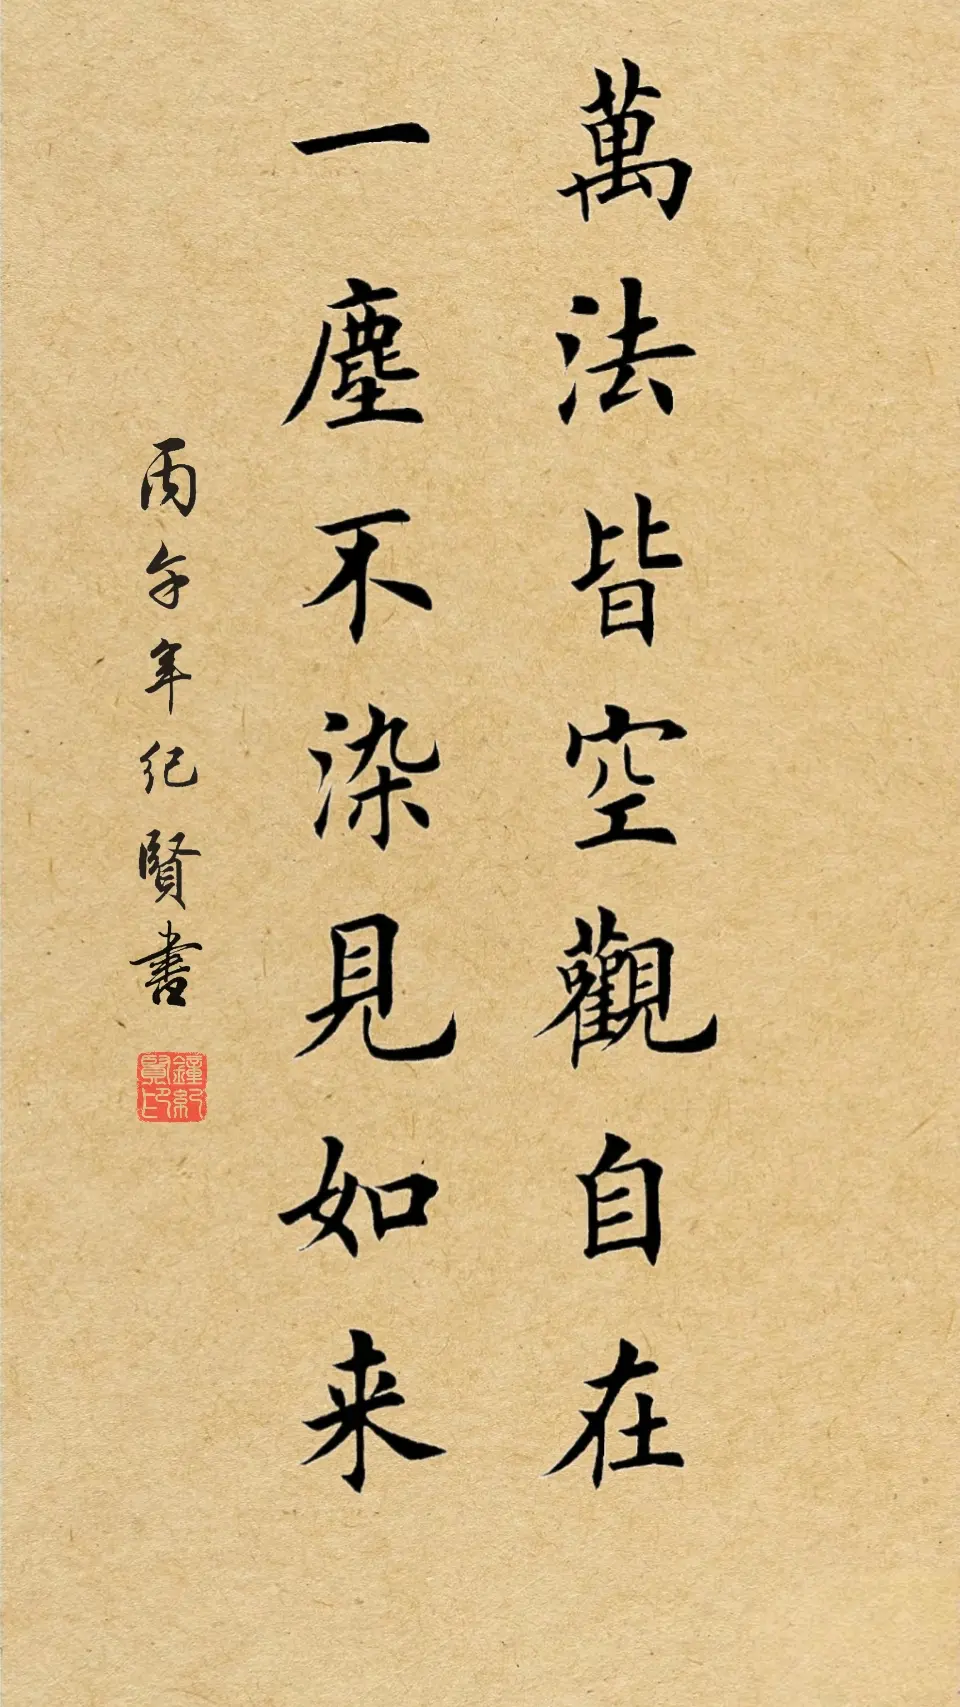 萬法皆空觀自在
一塵不染見如来
丙午年纪賢書
鐘紀賢印